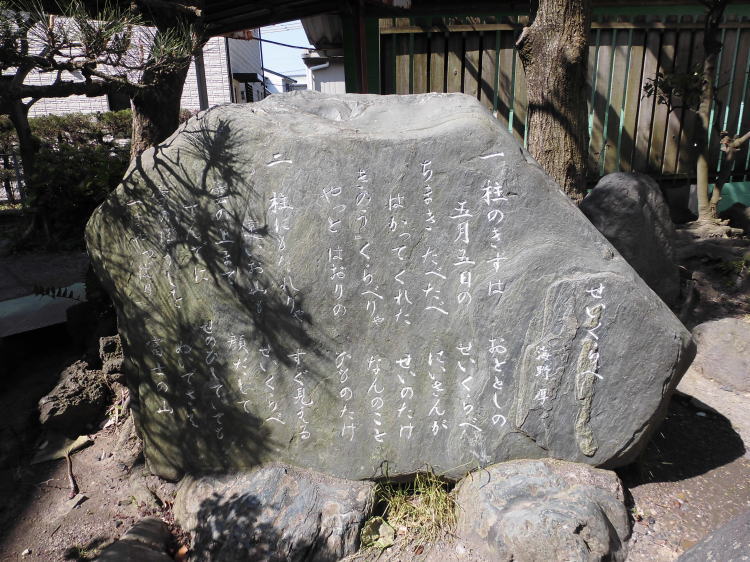 せいくらべ
海野 厚
一 柱のきずは おととしの
五月五日の せいくらべ
ちまきたべたべ にいさんが
はかってくれた せいのたけ
きのうくらべりゃ なんのこと
やっとはおりの ひものたけ
二 柱にもたれりゃ すぐ見える
遠いお山も せいくらべ
雲の上まで 顔だして
てんでに せのびしていても
ぬいでさえ
一はやっぱり 富士の山